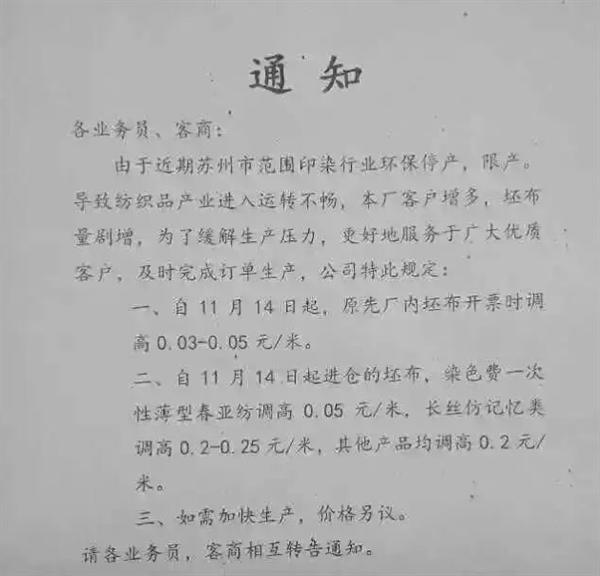 通知
各业务员、客商：
由于近期苏州市范围印染行业环保停产，限产。
导致纺织品产业进入运转不畅，本厂客户增多，坯布
量剧增，为了缓解生产压力，更好地服务于广大优质
客户，及时完成订单生产，公司特此规定：
一、自11月14日起，原先厂内坯布开票时调
高0.03-0.05元/米。
二、自11月14日起进仓的坯布，染色费一次
性薄型春亚纺调高0.05元/米，长丝仿记忆类
调高0.2-0.25元/米，其他产品均调高0.2元/
米。
三、如需加快生产，价格另议。
请各业务员，客商相互转告通知。